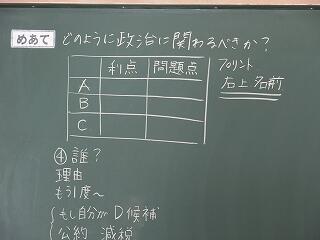 めあて どのように政治に関わるべきか?
利点 問題点
A
B
C
プリント
右上 名前
④ 誰?
理由
もう1度〜
もし自分が D 候補
公約 減税